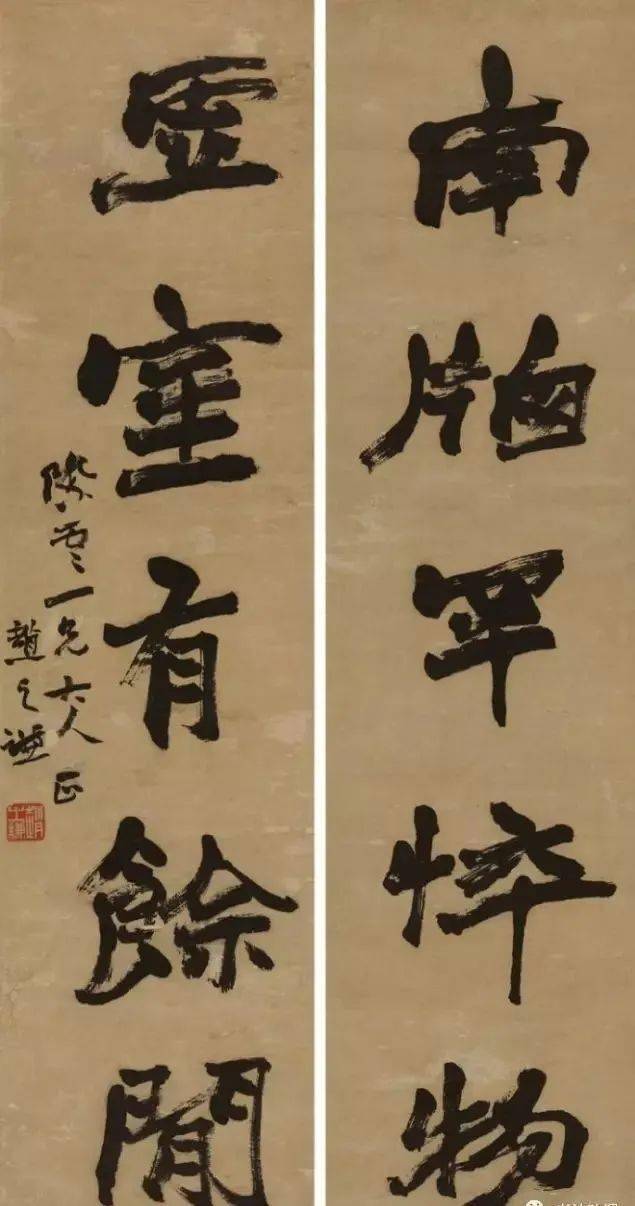 南牕罕悴物
虛室有餘閒
雲一兄大人正
趙之謙